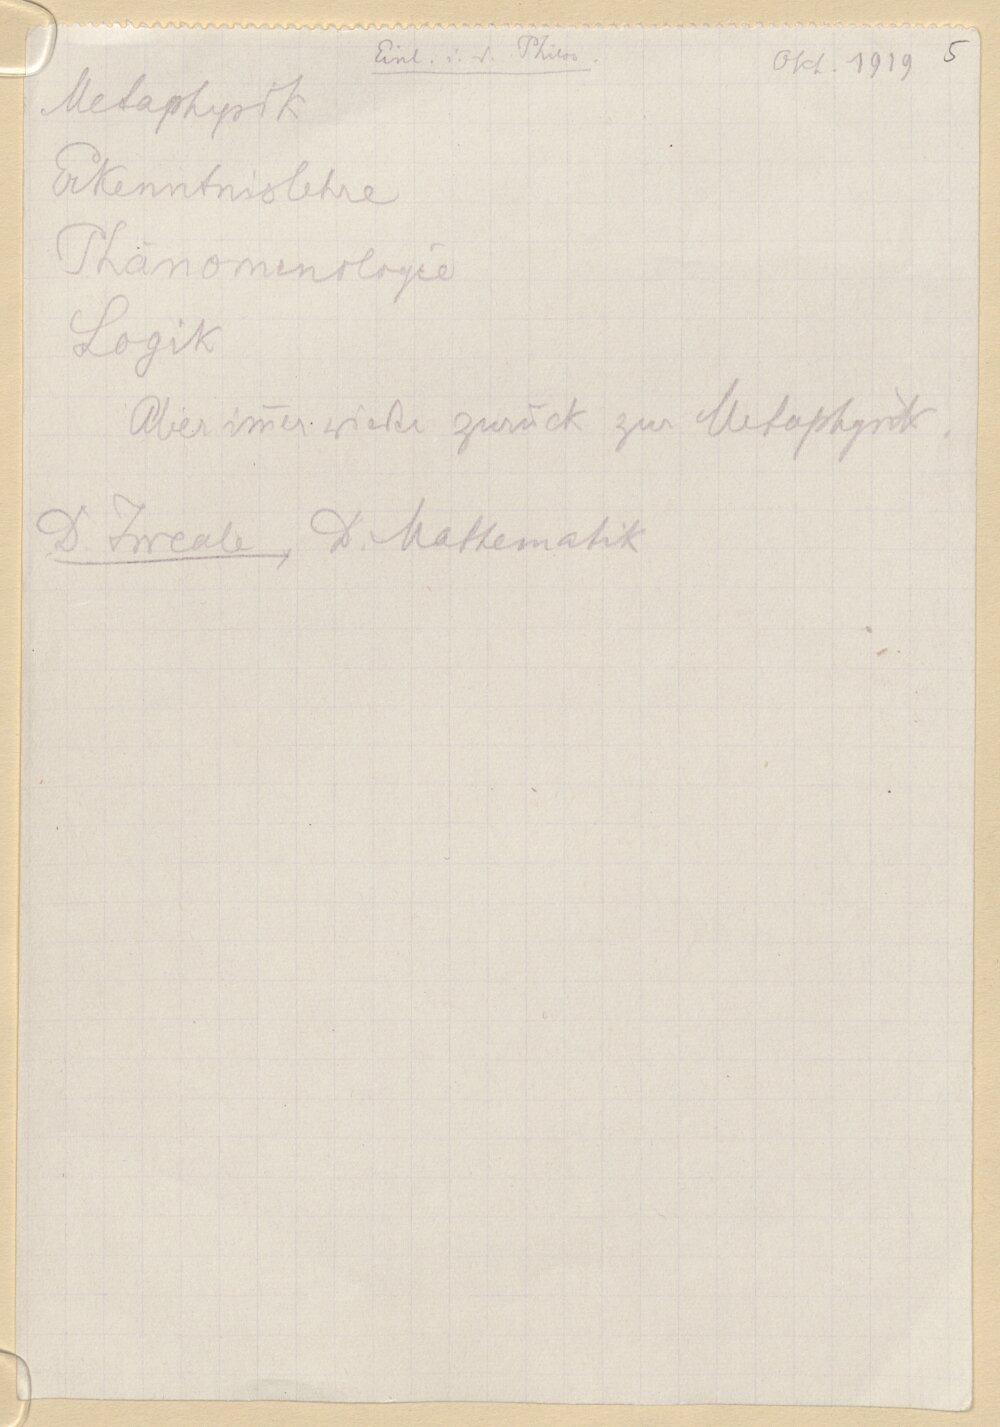 Einl. i. d. Philos.
Okt. 1919 5
Metaphysik
Erkenntnislehre
Phänomenologie
Logik
Aber im̄er wieder zurück zur Metaphysik.
D. D. Mathematik